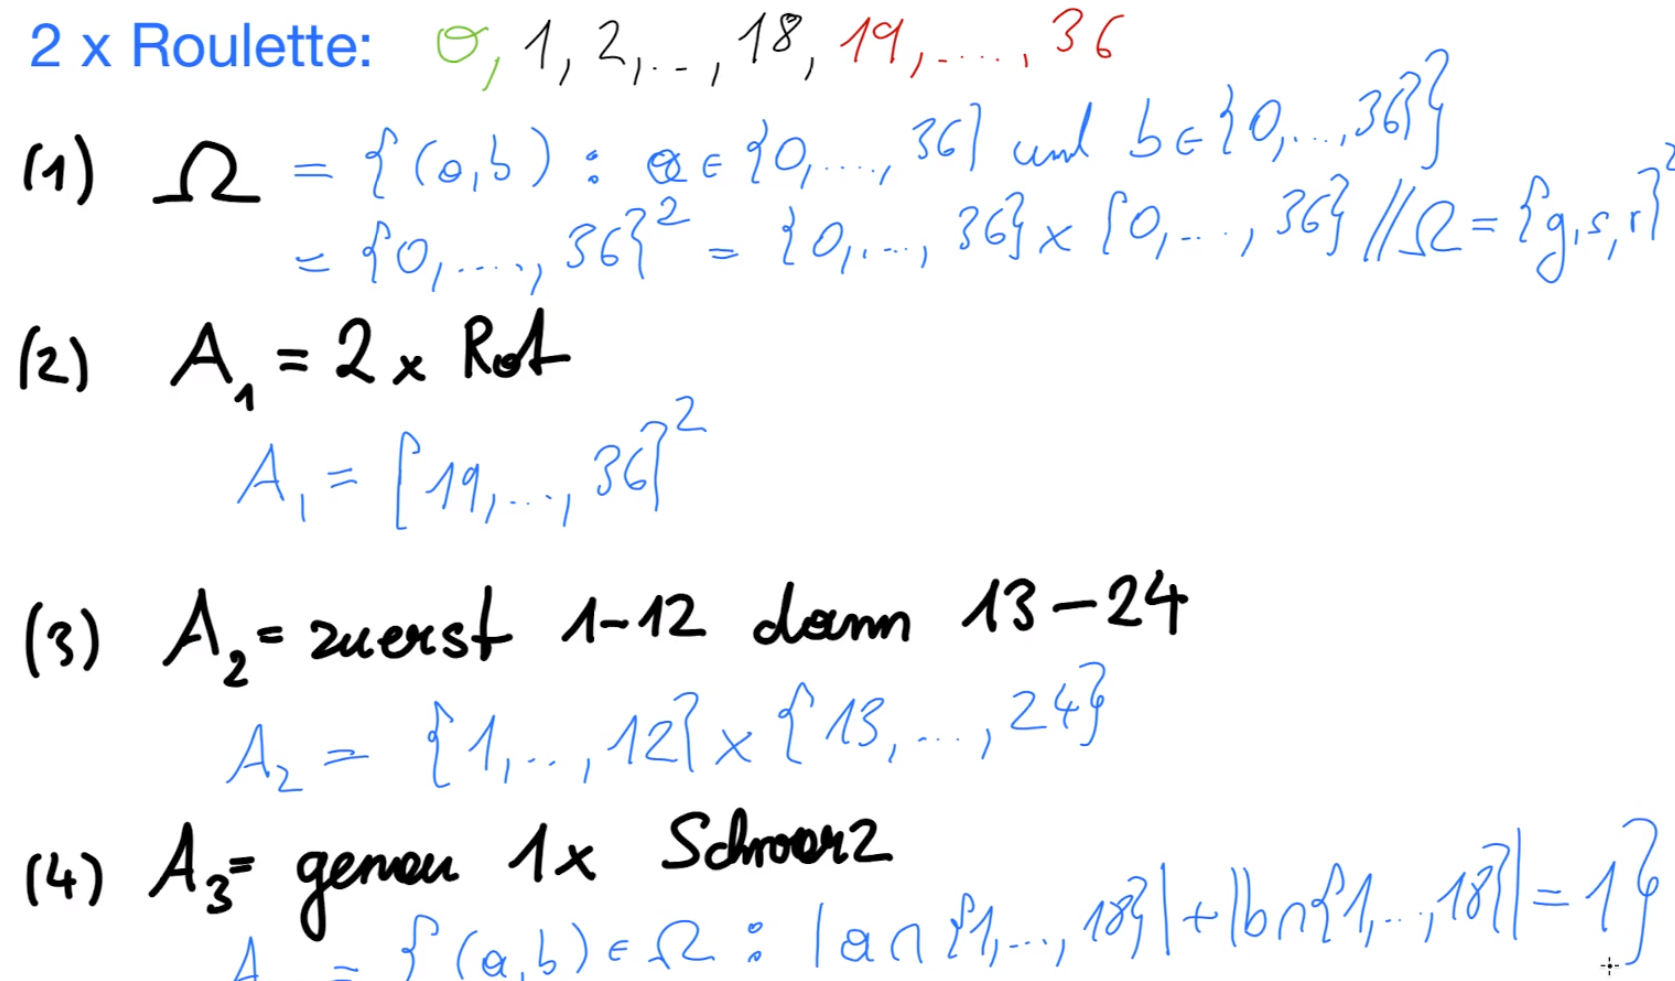 2 x Roulette: 0, 1, 2, .., 18, 19, ...., 36
(1) Ω = {(a,b) : a ∈ {0,....,36} und b ∈ {0,...,36}}
= {0,....,36}² = {0,...,36} x {0,...,36} // Ω = {g,s,r}²
(2) A₁ = 2 x Rot
A₁ = {19,...,36}²
(3) A₂ = zuerst 1-12 dann 13-24
A₂ = {1,..,12} x {13,...,24}
(4) A₃ = genau 1x Schwarz
A = {(a,b) ∈ Ω : |a∩{1,...,18}| + |b∩{1,...,18}| = 1}